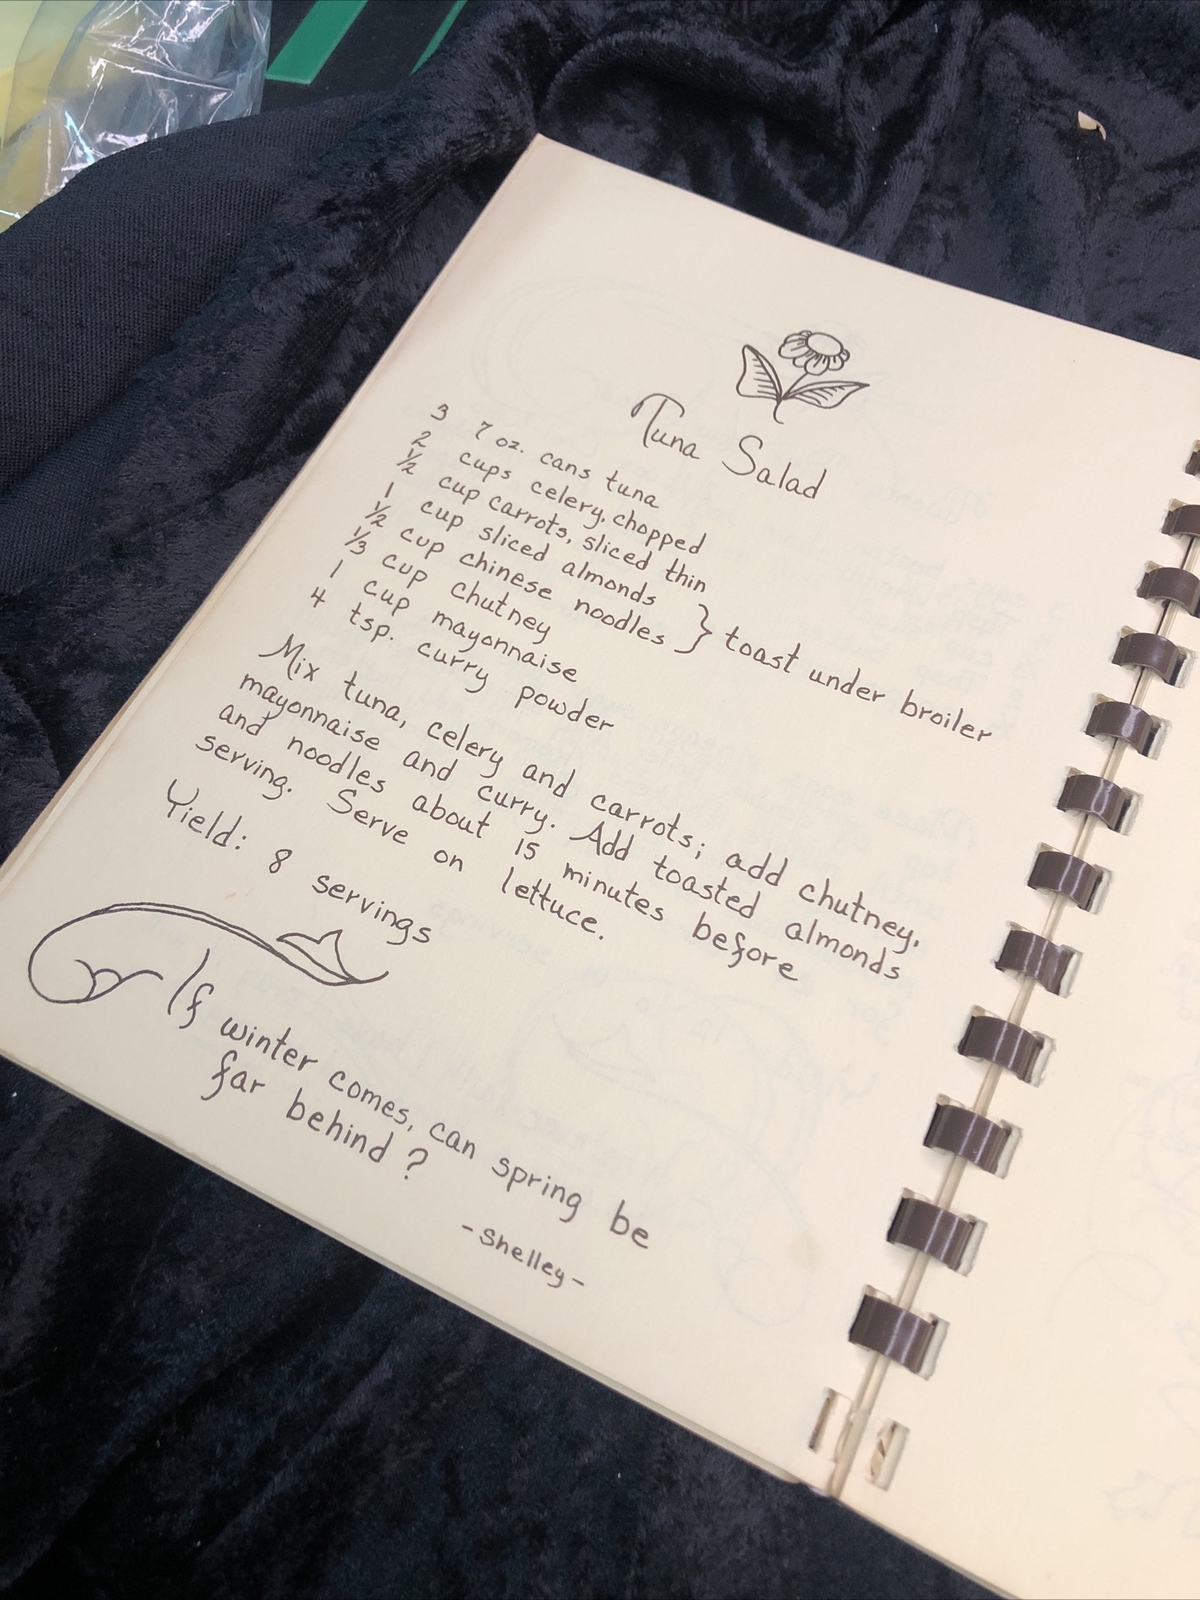 Tuna Salad
3 7 oz. cans tuna
2 cups celery, chopped
1/2 cup carrots, sliced thin
1 cup sliced almonds
1/2 cup chinese noodles } toast under broiler
1/3 cup chutney
1 cup mayonnaise
4 tsp. curry powder
Mix tuna, celery and carrots; add chutney,
mayonnaise and curry. Add toasted almonds
and noodles about 15 minutes before
serving. Serve on lettuce.
Yield: 8 servings
If winter comes, can spring be
far behind?
-Shelley-